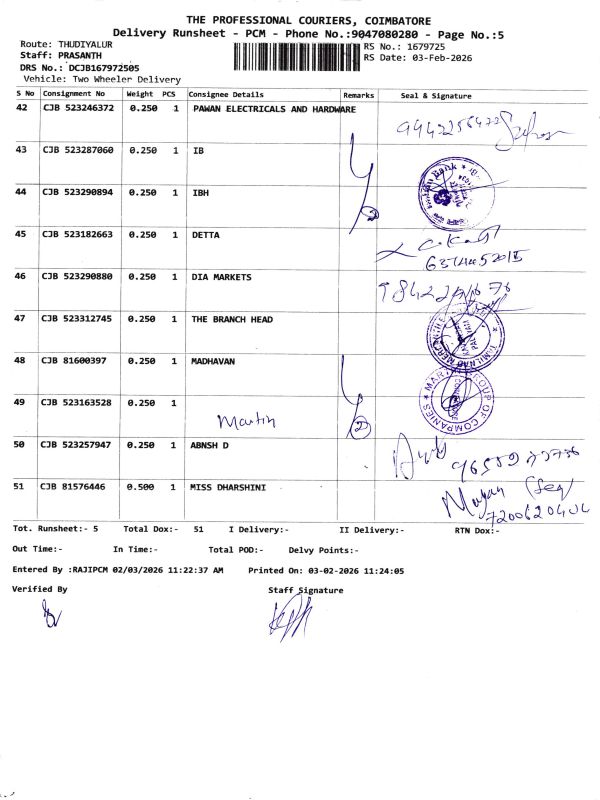 THE PROFESSIONAL COURIERS, COIMBATORE
Delivery Runsheet - PCM - Phone No.:9047080280 - Page No.:5
Route: THUDIYALUR
Staff: PRASANTH
DRS No.: DCJB167972505
Vehicle: Two Wheeler Delivery
RS No.: 1679725
RS Date: 03-Feb-2026
S No Consignment No Weight PCS Consignee Details Remarks Seal & Signature
42 CJB 523246372 0.250 1 PAWAN ELECTRICALS AND HARDWARE
43 CJB 523287060 0.250 1 IB
44 CJB 523290894 0.250 1 IBH
45 CJB 523182663 0.250 1 DETTA
46 CJB 523290880 0.250 1 DIA MARKETS
47 CJB 523312745 0.250 1 THE BRANCH HEAD
48 CJB 81600397 0.250 1 MADHAVAN
49 CJB 523163528 0.250 1 Martin
50 CJB 523257947 0.250 1 ABNSH D
51 CJB 81576446 0.500 1 MISS DHARSHINI
Tot. Runsheet:- 5 Total Dox:- 51 I Delivery:- II Delivery:- RTN Dox:-
Out Time:- In Time:- Total POD:- Delvy Points:-
Entered By :RAJIPCM 02/03/2026 11:22:37 AM Printed On: 03-02-2026 11:24:05
Verified By Staff Signature